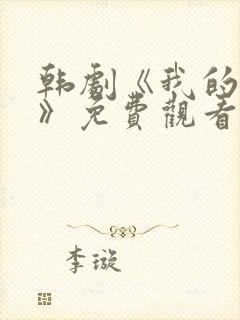 韩劇《我的
》免費觀看
李璇